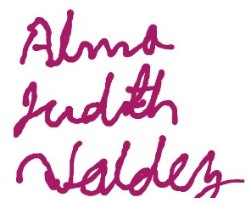 Alma
Judith
Valdez